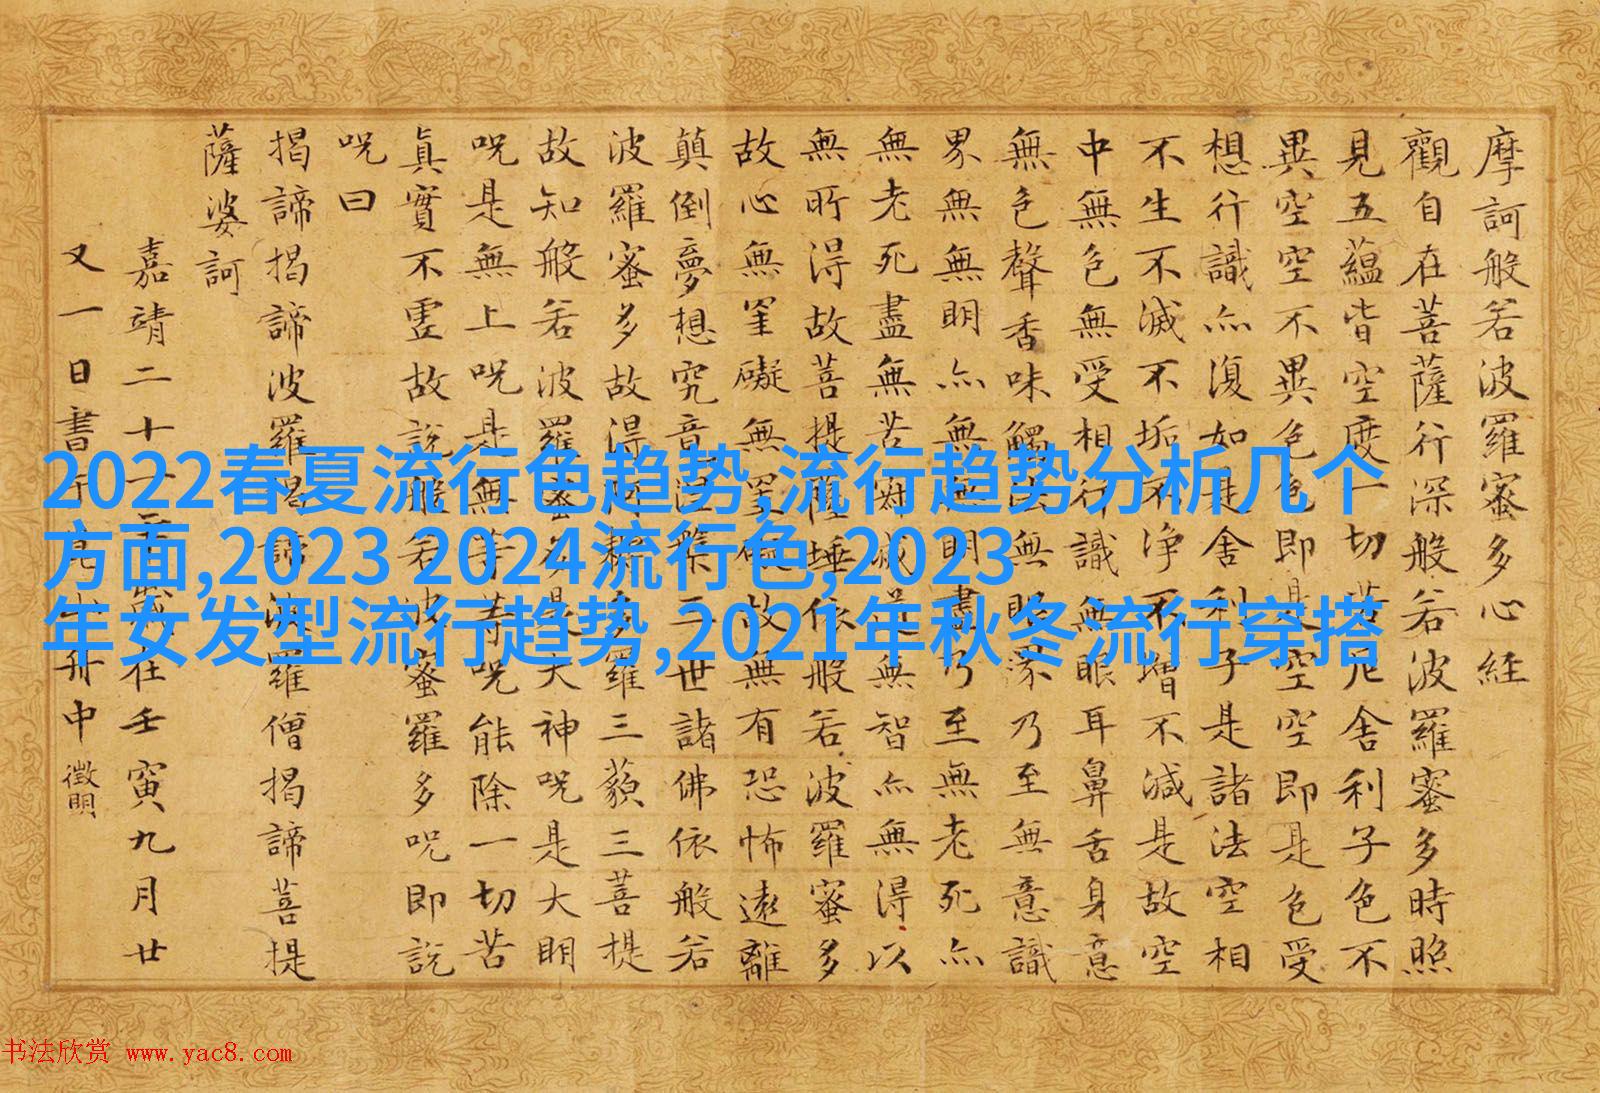 摩訶般若波羅蜜多心經
觀自在菩薩行深般若波羅蜜多時照
見五蘊皆空度一切苦厄舍利子色不
異空空不異色色即是空空即是色受
想行識亦復如是舍利子是諸法空相
不生不滅不垢不淨不增不減是故空
中無色無受相行識無眼耳鼻舌身意
無色聲香味觸法無眼界乃至無意識
界無無明亦無無明盡乃至無老死亦
無老死盡無苦滅道無智亦無得以
無所得故菩提薩埵依般若波羅蜜多
故心無罣礙無罣礙故無有恐怖遠離
顛倒夢想究竟涅槃三世諸佛依般若
波羅蜜多故得阿耨多羅三藐三菩提
故知般若波羅蜜多是大神呪是大明
呪是無上呪是無等等呪能除一切苦
眞實不虛故說般若波蜜羅多呪即說
呪曰
揭諦揭諦波羅揭諦波羅僧揭諦菩提
薩婆訶
嘉靖二十一年歲在壬寅九月廿
又一日書于舟中 徵明
2022春夏流行色趋势,流行趋势分析几个
方面,2023 2024流行色,2023
年女发型流行趋势,2021年秋冬流行穿搭
书法欣赏 www.yac8.com